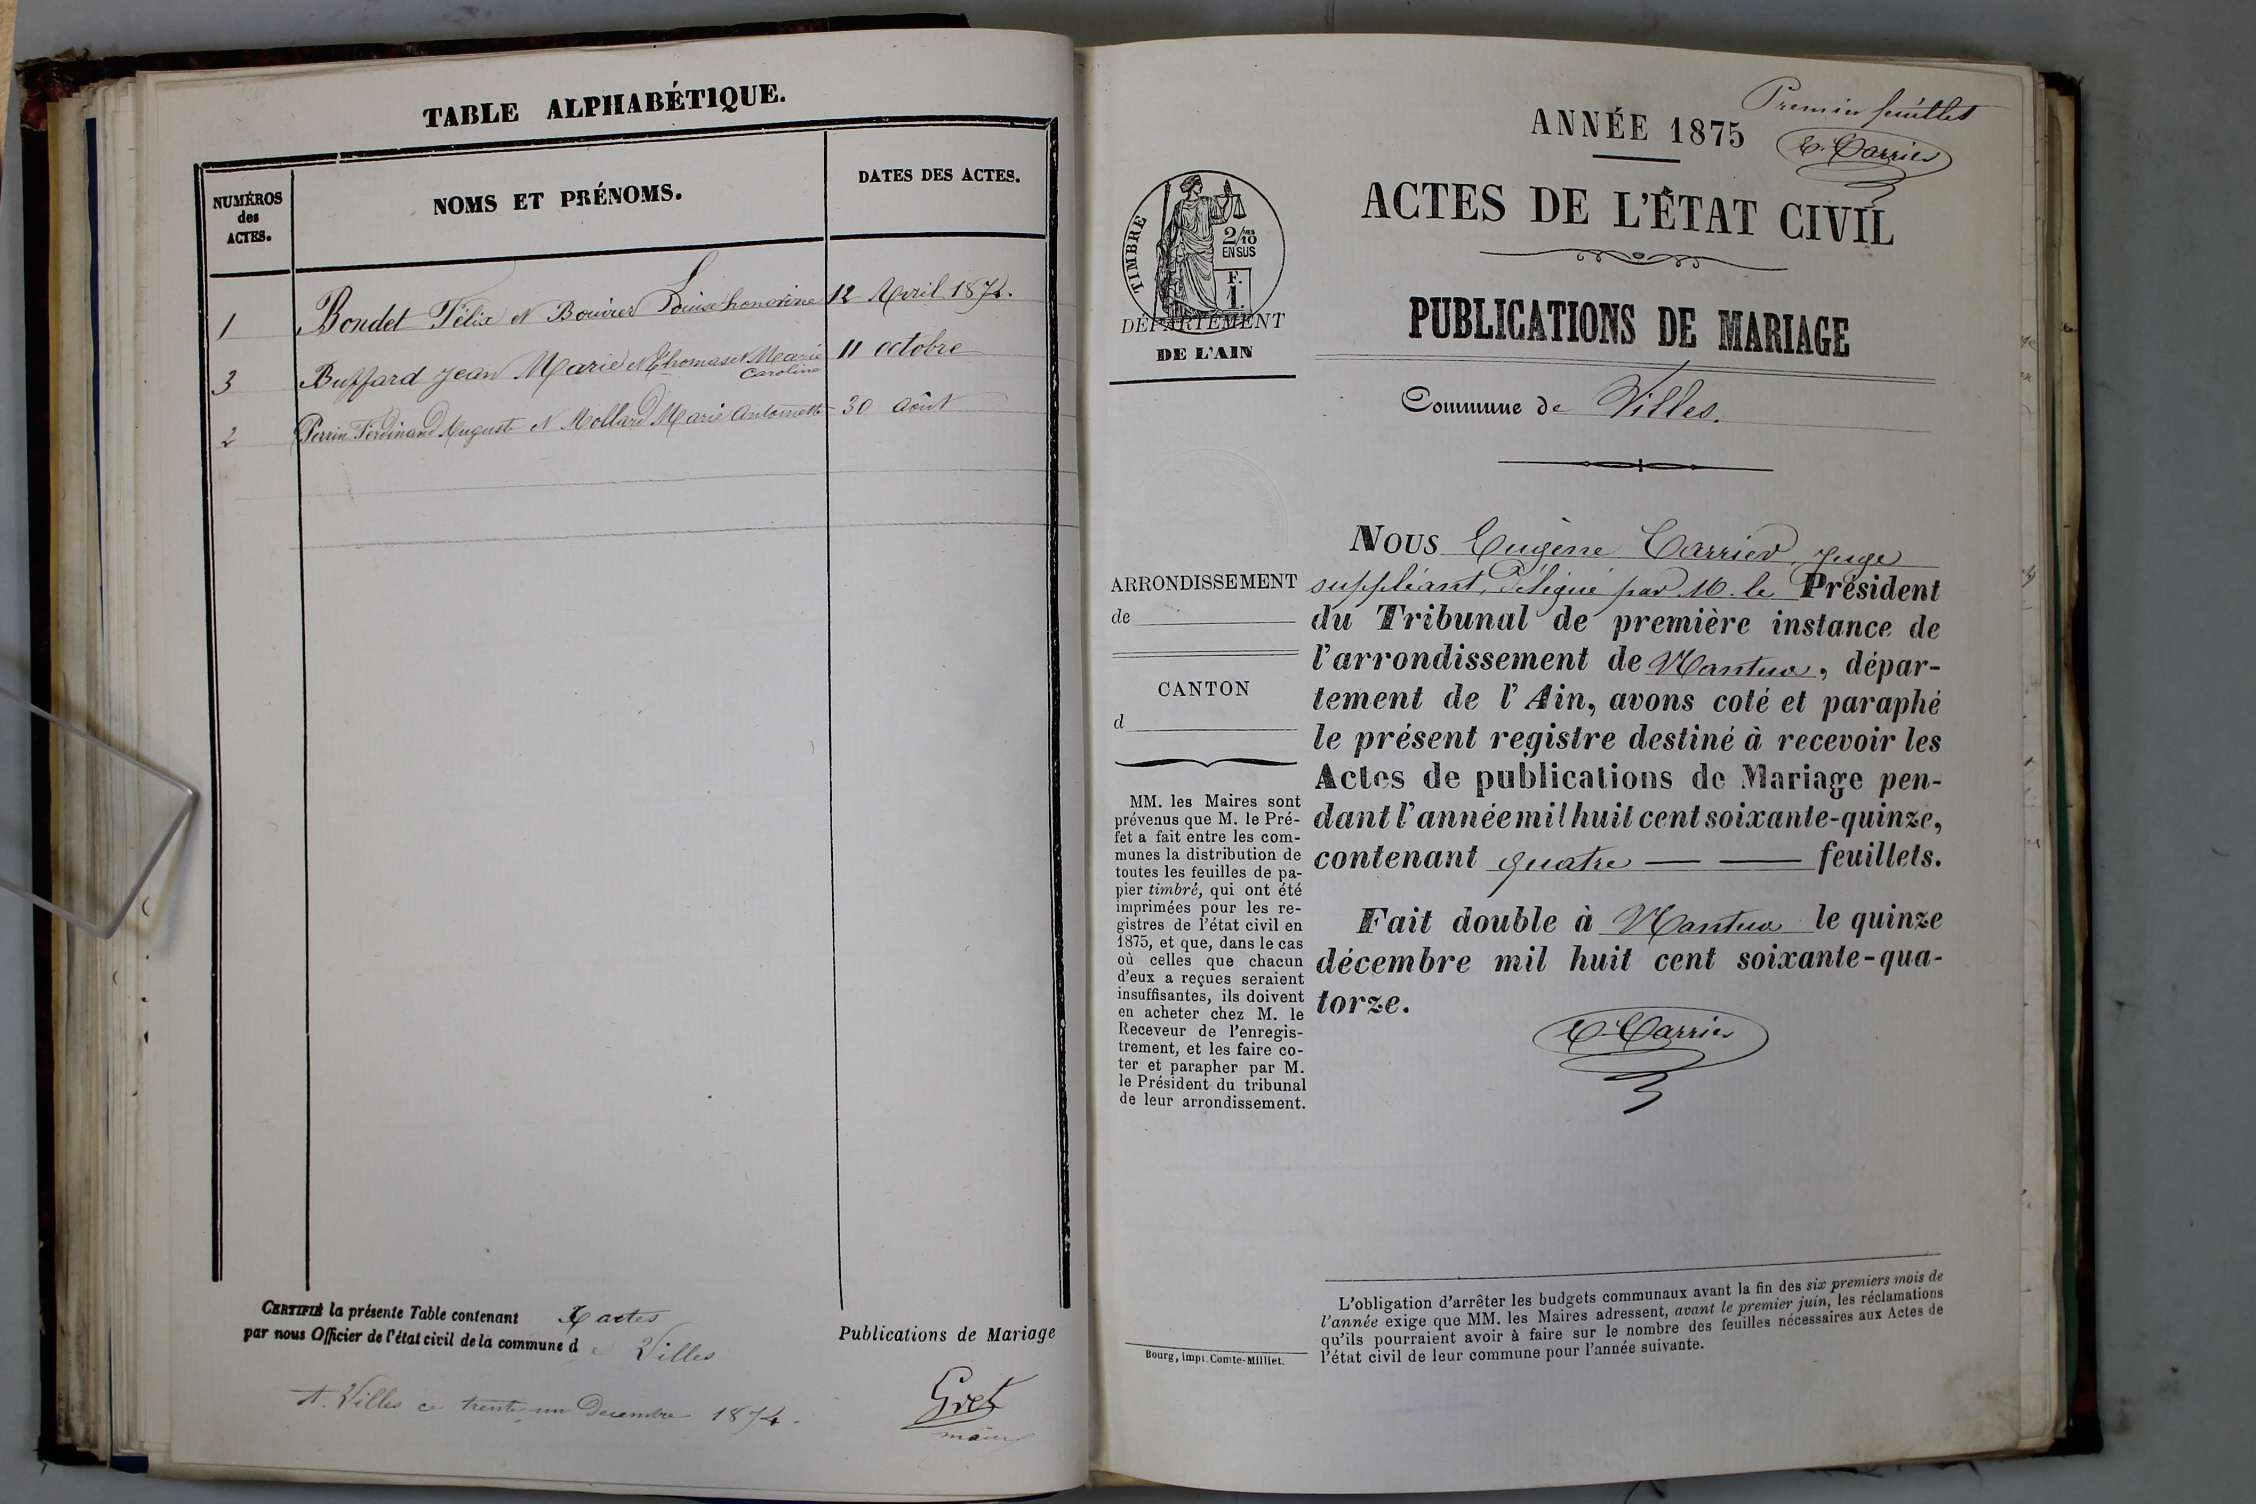 TABLE ALPHABÉTIQUE.
NUMÉROS
des
ACTES.
NOMS ET PRÉNOMS.
DATES DES ACTES.
1 Bondet Félix et Bouvier Louise honorine 12 Avril 1874.
3 Buffard Jean Marie et Thomasset Marie 11 octobre
Caroline
2 Perrin Ferdinand Auguste et Mollard Marie Antoinette 30 août
CERTIFIÉ la présente Table contenant actes
par nous Officier de l'état civil de la commune de Villes
Publications de Mariage
A Villes ce trente un Decembre 1874.
Gret
maire
Premier feuillet
ANNÉE 1875
E. Carrier
ACTES DE L'ÉTAT CIVIL
TIMBRE
2/10
EN SUS
F.
1.
DÉPARTEMENT
DE L'AIN
PUBLICATIONS DE MARIAGE
Commune de Villes.
ARRONDISSEMENT
de
CANTON
d
MM. les Maires sont
prévenus que M. le Pré-
fet a fait entre les com-
munes la distribution de
toutes les feuilles de pa-
pier timbré, qui ont été
imprimées pour les re-
gistres de l'état civil en
1875, et que, dans le cas
où celles que chacun
d'eux a reçues seraient
insuffisantes, ils doivent
en acheter chez M. le
Receveur de l'enregis-
trement, et les faire co-
ter et parapher par M.
le Président du tribunal
de leur arrondissement.
Bourg, impr. Comte-Milliet.
NOUS Eugène Carrier, Juge
suppléant, délégué par M. le Président
du Tribunal de première instance de
l'arrondissement de Nantua, dépar-
tement de l'Ain, avons coté et paraphé
le présent registre destiné à recevoir les
Actes de publications de Mariage pen-
dant l'année mil huit cent soixante-quinze,
contenant quatre — — feuillets.
Fait double à Nantua le quinze
décembre mil huit cent soixante-qua-
torze.
E. Carrier
L'obligation d'arrêter les budgets communaux avant la fin des six premiers mois de
l'année exige que MM. les Maires adressent, avant le premier juin, les réclamations
qu'ils pourraient avoir à faire sur le nombre des feuilles nécessaires aux Actes de
l'état civil de leur commune pour l'année suivante.